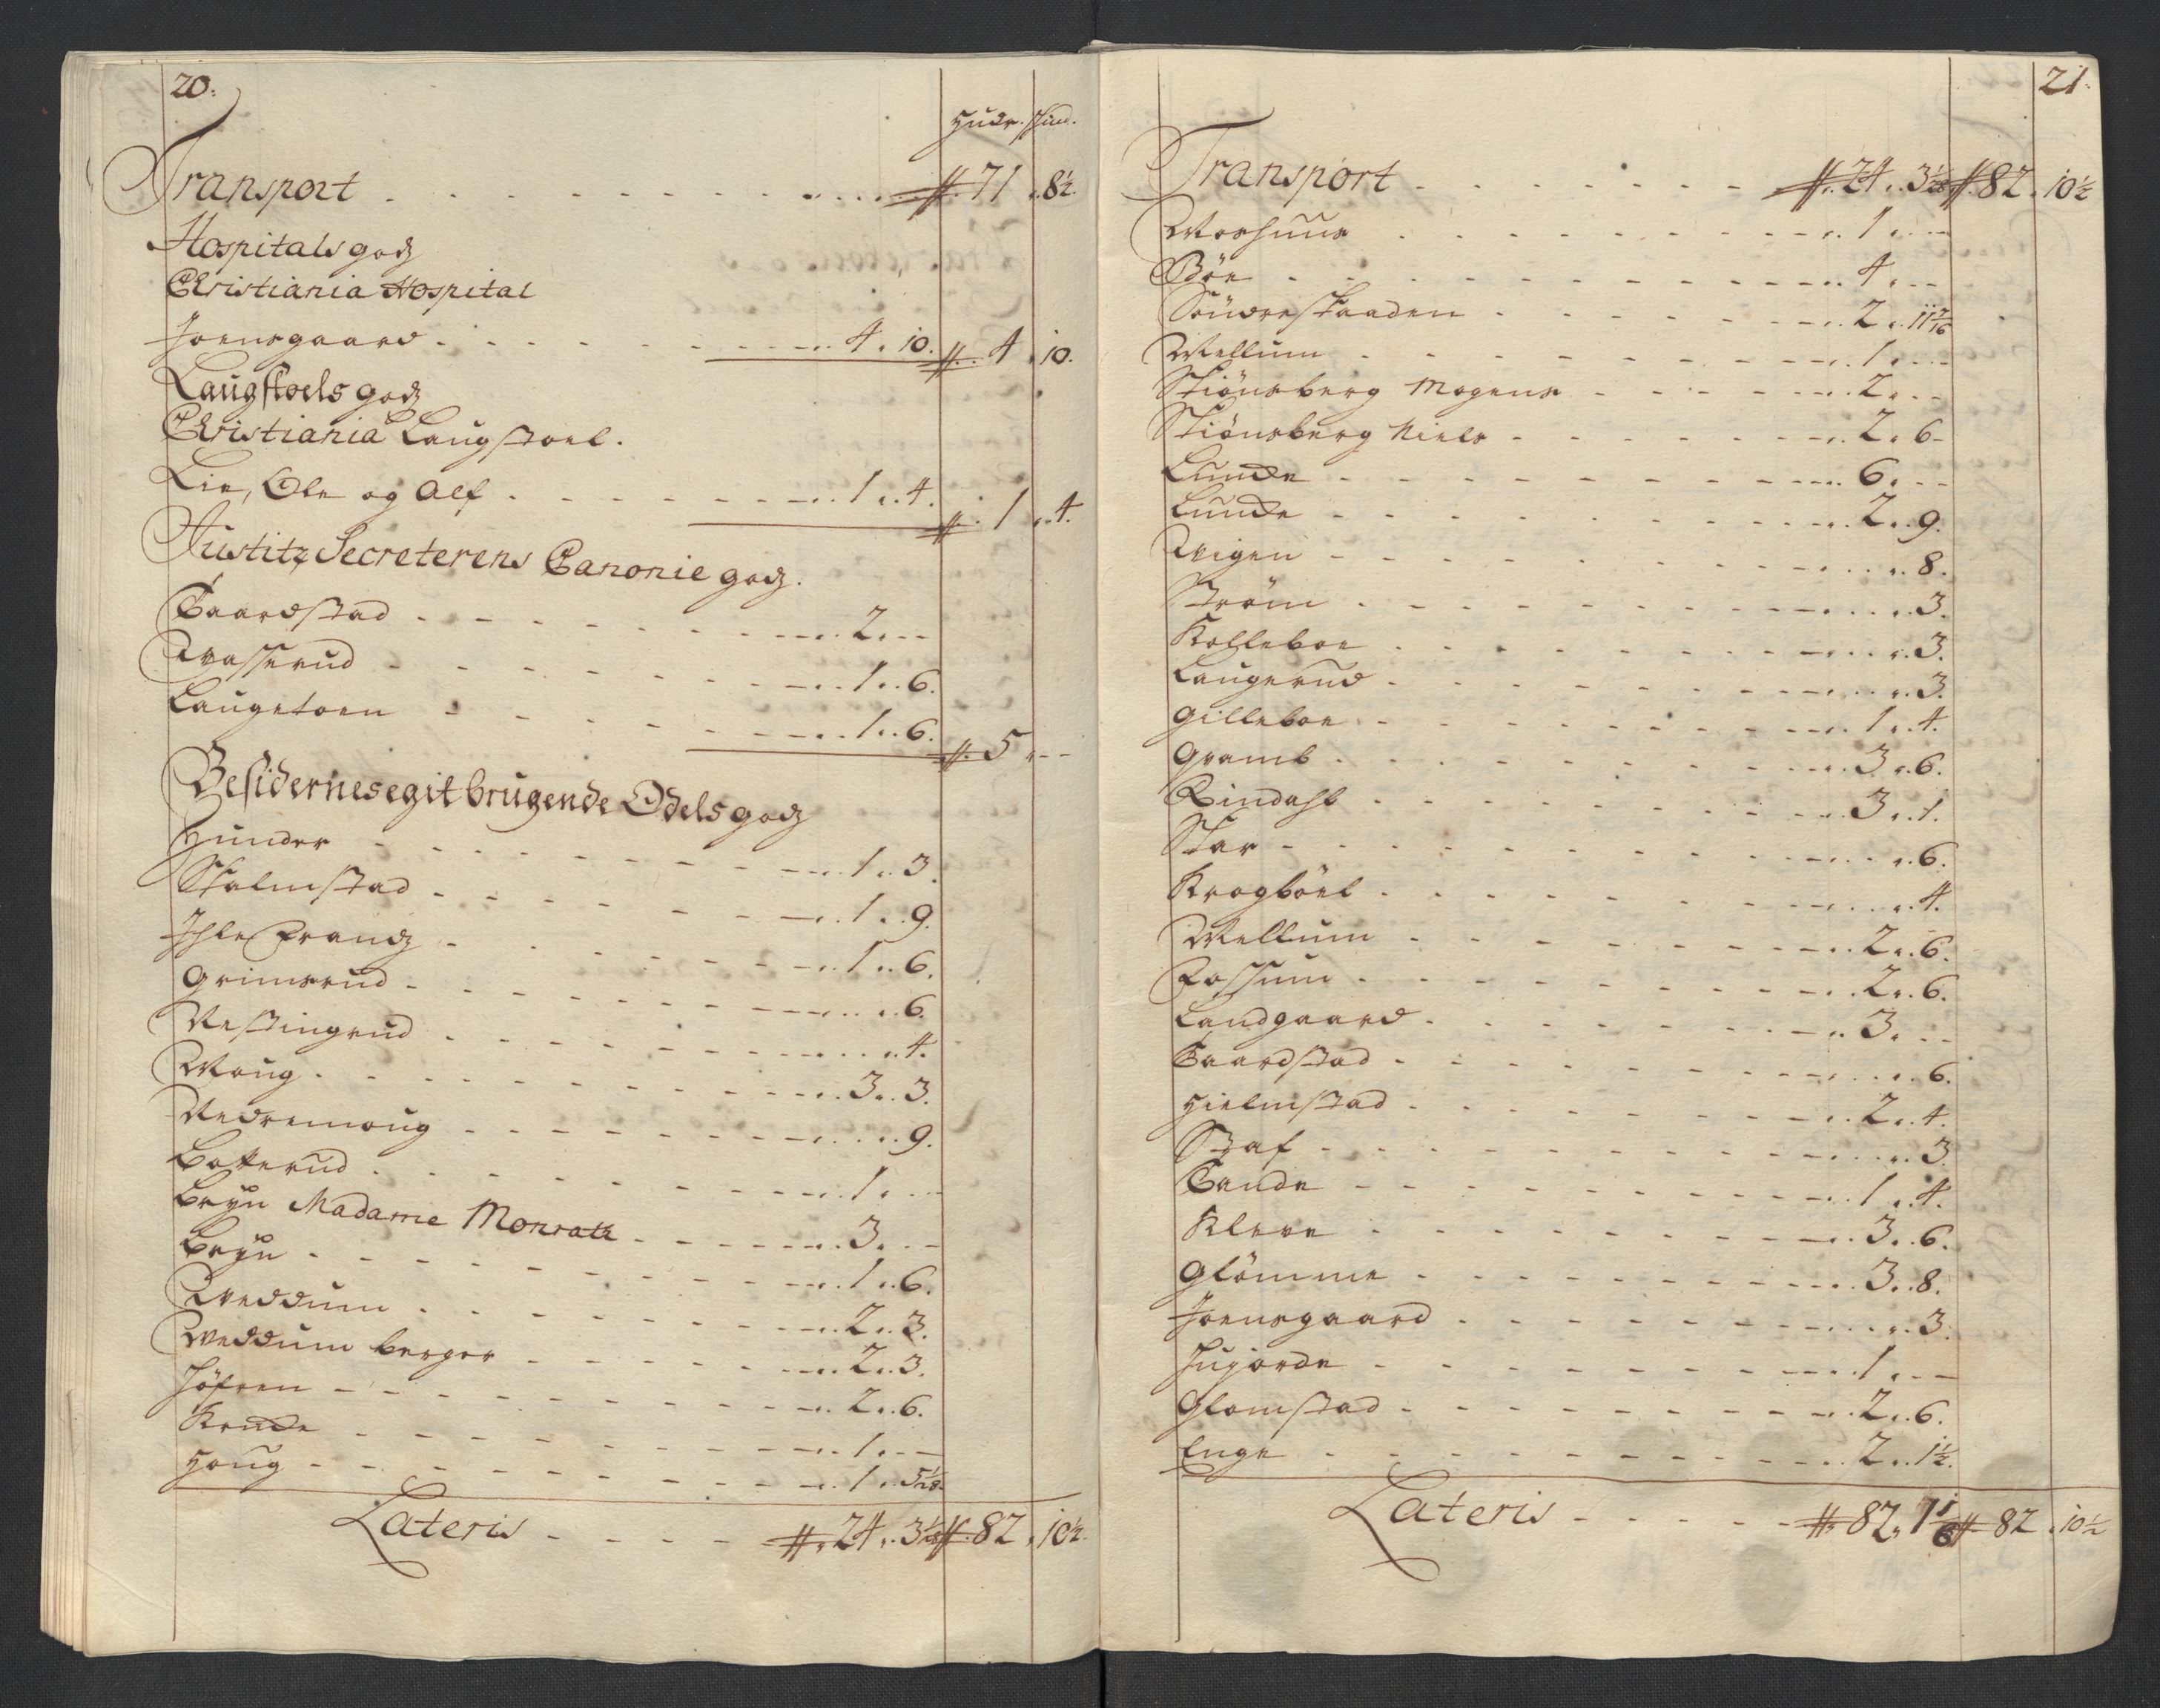 20.
Hudr. Skind.
Transport . . . # 71 . 8½.
Hospitals godz
Christiania Hospital
Joensgaard . . . 4 . 10. # . 4 . 10.
Laugstoels godz
Christiania Laugstoel.
Lie, Ole og Alf . . . 1 . 4. # . 1 . 4.
Justitz Secreterens Canonie godz.
Baardstad . . . 2 . -
Qvasserud . . . 1 . 6.
Laugetoen . . . 1 . 6. # . 5 . -
Besidernes egit brugende Odels godz
Hunder . . . 1 . 3.
Skalmstad . . . 1 . 9.
Ihle Frandz . . . 1 . 6.
Grimsrud . . . 6.
Nestingrud . . . 4.
Moug . . . 3 . 3.
Nedremoug . . . 9.
Botterud . . . 1 . -
Bryn Madame Monrath . . . 3 . -
Bryn . . . 1 . 6.
Qveddum . . . 2 . 3.
Qveddum berger . . . 2 . 3.
Höfren . . . 2 . 6.
Krude . . . 1 . -
Houg . . . 1 .
Lateris . . . # . 24 . 3 # . 82 . 10½.
21.
Transport . . . # . 24 . 3 # 82 . 10½
Morhuus . . . 1 . -
Böe . . . 4 . -
Söndreskaaden . . . 2 . 11
Mellum . . . 1 . -
Skiönsberg Mogens . . . 2 . -
Skiönsberg Niels . . . 2 . 6
Lunde . . . 6 . -
Lunde . . . 2 . 9.
Qvigen . . . 8.
Ström . . . 3.
Kolleboe . . . 3.
Laugerud . . . 3.
Gilleboe . . . 1 . 4.
Gramb . . . 3 . 6.
Rindahl . . . 3 . 1.
Skar . . . 6.
Krogböel . . . 4.
Mellum . . . 2 . 6.
Fossum . . . 2 . 6.
Landgaard . . . 3 . -
Baardstad . . . 6.
Hielmstad . . . 2 . 4.
Staf . . . 3
Sande . . . 1 . 4.
Kleve . . . 3 . 6.
Glömme . . . 3 . 8.
Joensgaard . . . 3.
Hujorde . . . 1 . -
Glomstad . . . 2 . 6.
Enge . . . 2 . 1½.
Lateris . . . # . 82 . 7 # 82 . 10½